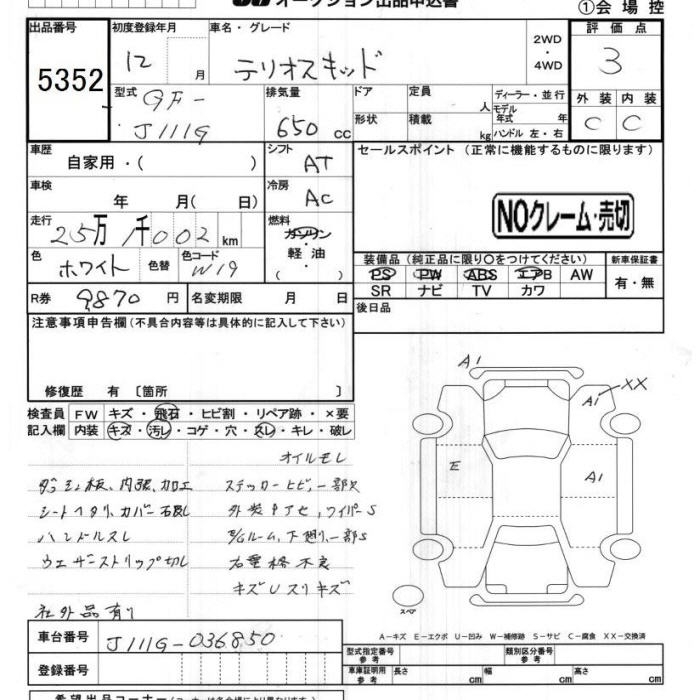 オークション出品申込書
①会場控
出品番号 初度登録年月 車名・グレード 2WD・4WD 評価点
5352 12 月 テリオスキッド 3
型式 GF-J111G 排気量 650 cc ドア 定員 人 ディーラー・並行
形状 積載 kg モデル年式 年 ハンドル 左・右
外装 内装
C C
車歴 自家用・( ) シフト AT セールスポイント (正常に機能するものに限ります)
車検 年 月( 日) 冷房 AC
NOクレーム・売切
走行 25万 1千002 km 燃料 ガソリン・軽油
色 ホワイト 色替 色コード W19
装備品(純正品に限り○をつけてください) 新車保証書
PS PW ABS エアB AW 有・無
SR ナビ TV カワ
R券 9,870 円 名変期限 月 日 後日品
注意事項申告欄(不具合内容等は具体的に記入して下さい)
修復歴 有 〔箇所 〕
検査員 FW キズ・飛石・ヒビ割・リペア跡・×要
記入欄 内装 キズ・汚レ・コゲ・穴・スレ・キレ・破レ
オイルモレ
ダッシュ板、内張、加工 ステッカーヒビ、一部欠
シートヘタリ、カバー
ハンドルスレ 下廻、一部S
ウェザーストリップ切レ 不良
キズUスリキズ
社外品有り
A1
A1 XX
E A1
スペア
A-キズ E-エクボ U-凹み W-補修跡 S-サビ C-腐食 XX-交換済
車台番号 J111G-036850
登録番号
型式指定番号 参考 類別区分番号 参考
車庫証明用 参考 長さ cm 幅 cm 高さ cm
希望出品コーナー